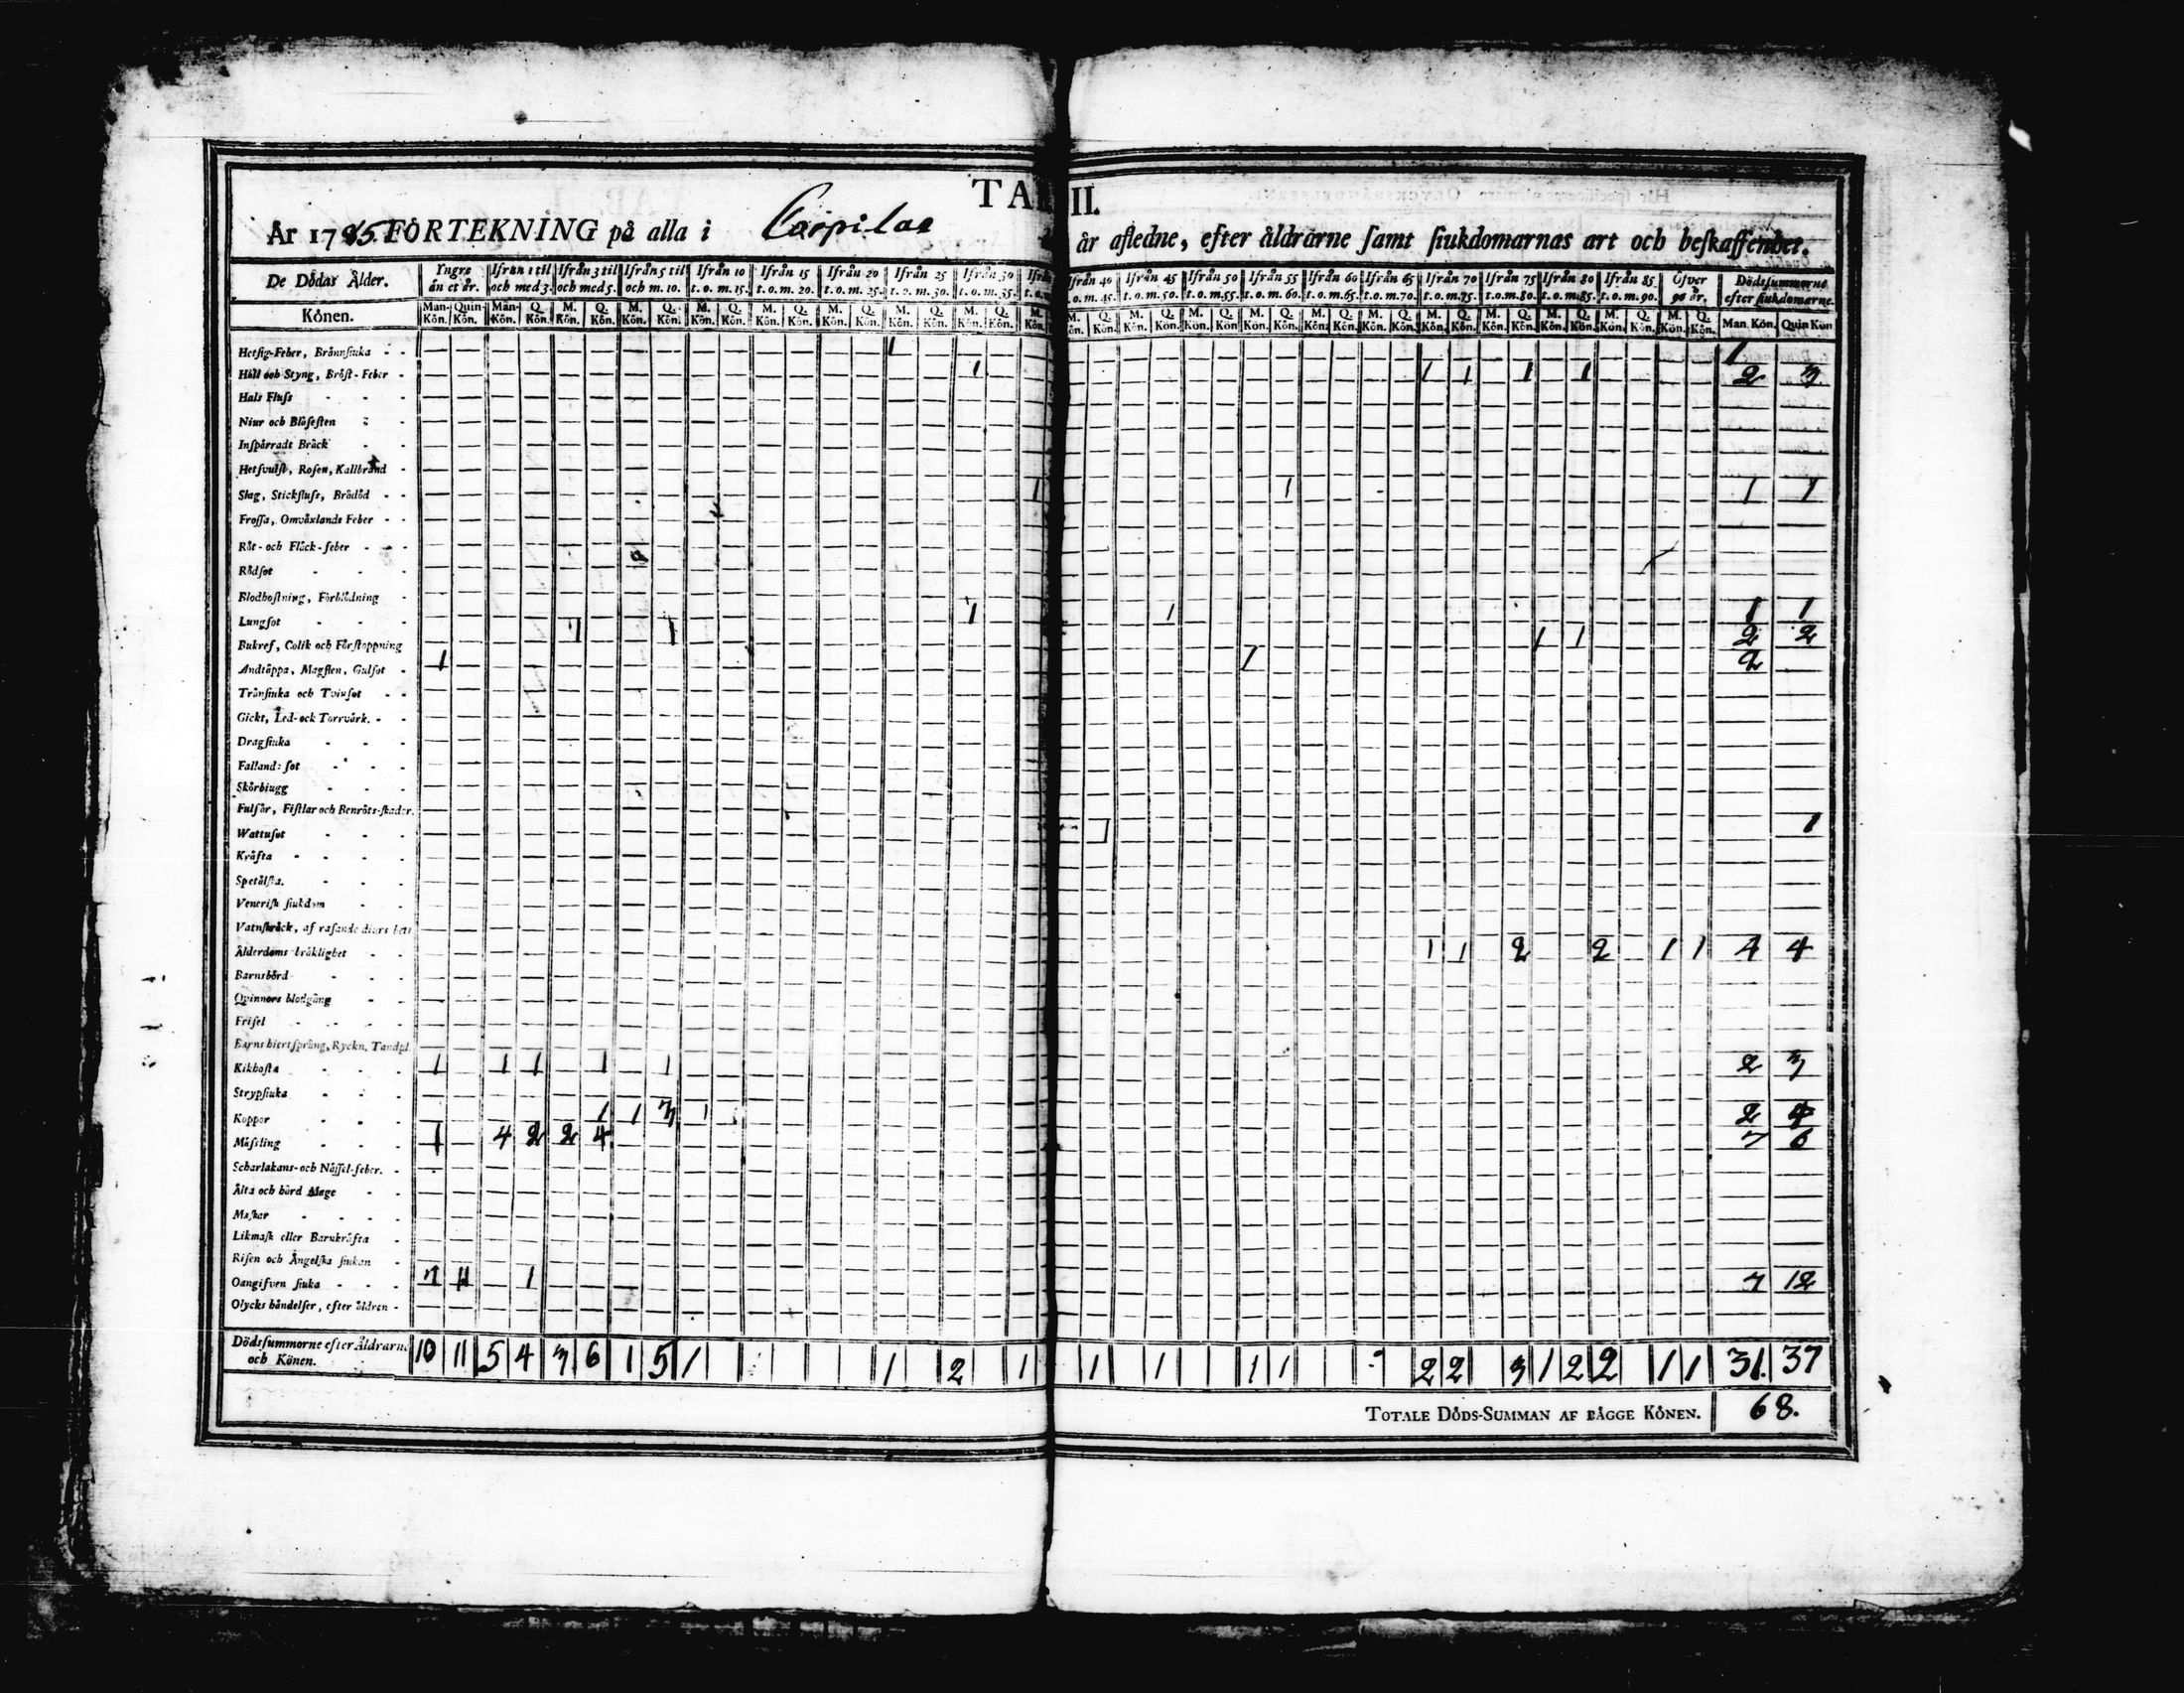 TAB II.
År 1785. FÖRTEKNING på alla i Carpilax år afledne, efter åldrarne samt siukdomarnas art och beskaffenhet.
De Dödas Ålder. Yngre än et år. Ifrån 1 til och med 3. Ifrån 3 til och med 5. Ifrån 5 til och m. 10. Ifrån 10 t. o. m. 15. Ifrån 15 t. o. m. 20. Ifrån 20 t. o. m. 25. Ifrån 25 t. o. m. 30. Ifrån 30 t. o. m. 35. Ifrån 40 t. o. m. 45. Ifrån 45 t. o. m. 50. Ifrån 50 t. o. m. 55. Ifrån 55 t. o. m. 60. Ifrån 60 t. o. m. 65. Ifrån 65 t. o. m. 70. Ifrån 70 t. o. m. 75. Ifrån 75 t. o. m. 80. Ifrån 80 t. o. m. 85. Ifrån 85 t. o. m. 90. Öfver 90 år. Dödssummorne efter siukdomarne.
Könen. Man-Kön. Quin-Kön. Man-Kön. Q. Kön. M. Kön. Q. Kön. M. Kön. Q. Kön. M. Kön. Q. Kön. M. Kön. Q. Kön. M. Kön. Q. Kön. M. Kön. Q. Kön. M. Kön. Q. Kön. M. Kön. M. Kön. Q. Kön. M. Kön. Q. Kön. M. Kön. Q. Kön. M. Kön. Q. Kön. M. Kön. Q. Kön. M. Kön. Q. Kön. M. Kön. Q. Kön. M. Kön. Q. Kön. M. Kön. Q. Kön. M. Kön. Q. Kön. M. Kön. Q. Kön. Man. Kön. Quin Kön
Hetsig-Feber, Brännsiuka 1 1
Håll och Styng, Bröst-Feber 1 1 1 1 1 2 3
Hals Fluss
Niur och Blåsesten
Inspärradt Bråck
Hetsvulst, Rosen, Kallbrand
Slag, Stickfluss, Brådöd 1 1 1 1
Frossa, Omväxlande Feber
Röt- och Fläck-feber
Rödsot
Blodhostning, Förblödning
Lungsot 1 1 1 1
Bukref, Colik och Förstoppning 1 1 1 1 2 2
Andtäppa, Magsten, Gulsot 1 1 2
Trånsiuka och Tvinsot
Gickt, Led- och Torrvärk.
Dragsiuka
Falland: sot
Skörbiugg
Fulsår, Fistlar och Benröts-skador.
Wattusot 1 1
Kräfta
Spetälska.
Venerisk siukdom
Vatnskräck, af rasande diurs bett
Ålderdoms bräklighet 1 1 2 2 1 1 4 4
Barnsbörd
Qvinnors blodgång
Frisel
Barns hiertsprång, Ryckn. Tandpl.
Kikhosta 1 1 1 1 1 2 3
Strypsiuka
Koppor 1 1 3 1 2 4
Mässling 1 4 2 2 4 7 6
Scharlakans- och Nässel-feber.
Älta och hård Mage
Maskar
Likmask eller Barnkräfta
Risen och Ängelska siukan
Oangifven siuka 7 11 1 7 12
Olycks händelser, efter åldren
Dödssummorne efter Åldrarne och Könen. 10 11 5 4 3 6 1 5 1 1 2 1 1 1 1 1 2 2 3 1 2 2 1 1 31. 37
TOTALE DÖDS-SUMMAN AF BÅGGE KÖNEN. 68.